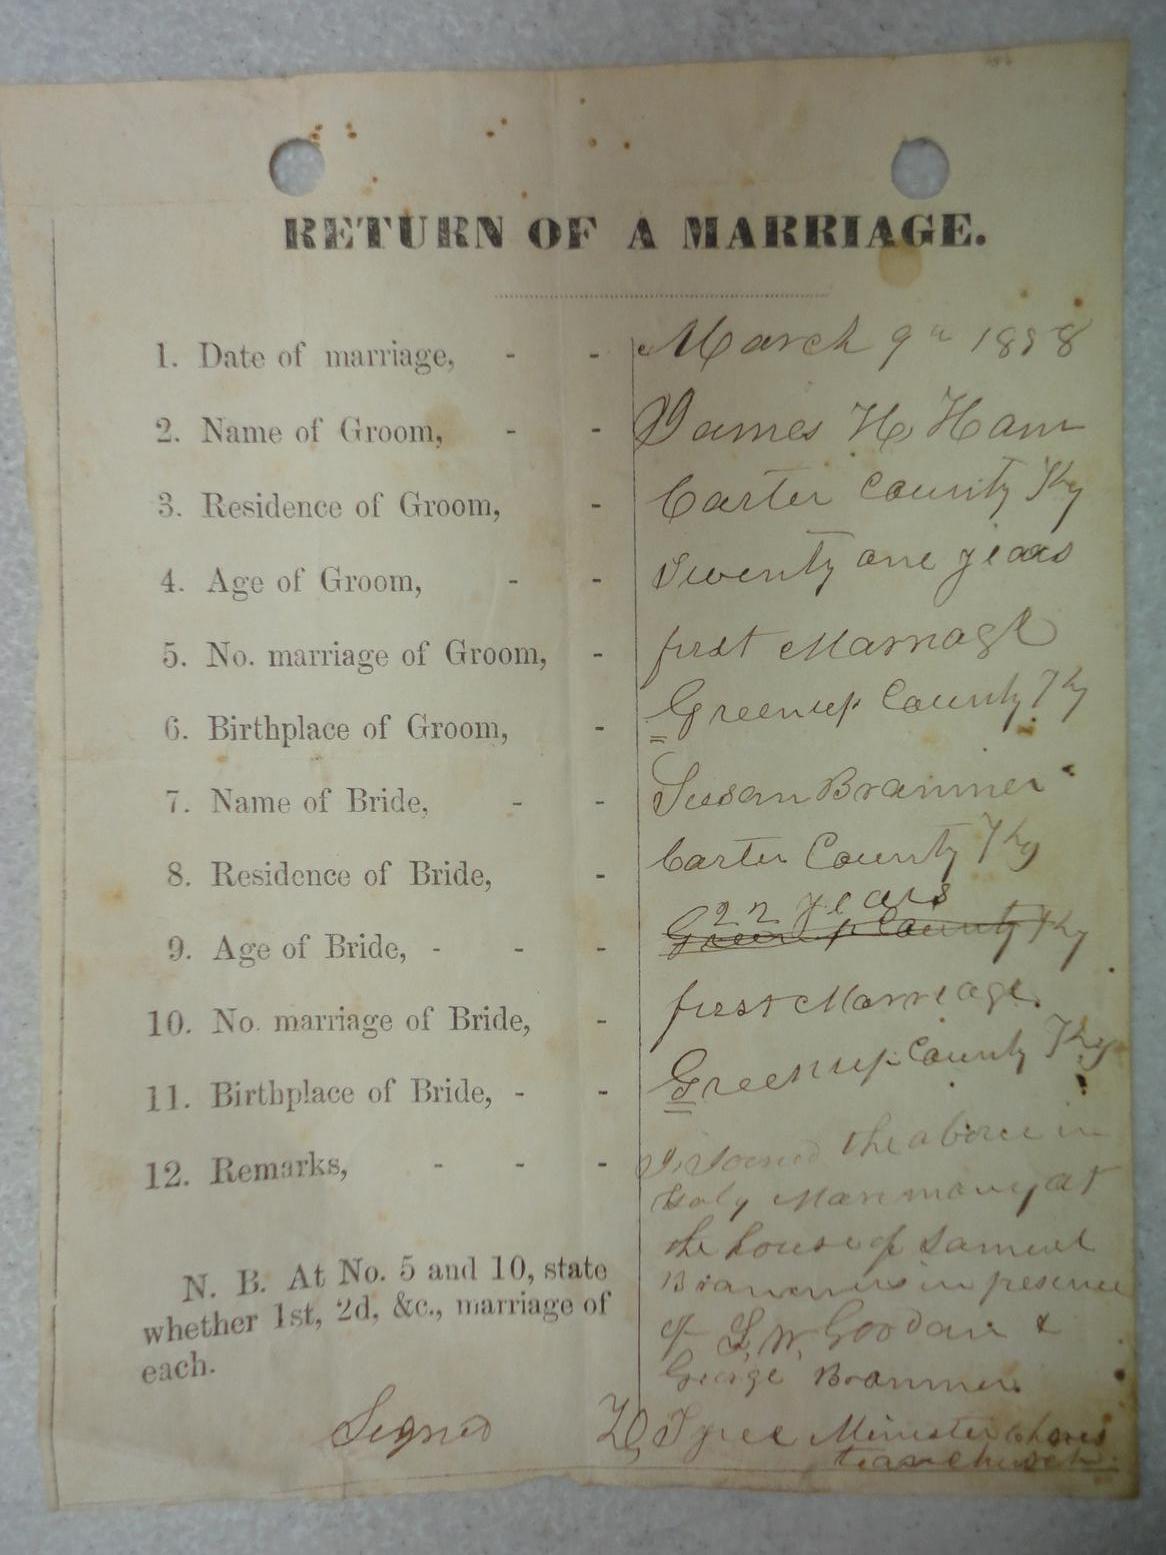 RETURN OF A MARRIAGE.
1. Date of marriage, - - March 9th 1858
2. Name of Groom, - - James H Ham
3. Residence of Groom, - Carter County Ky
4. Age of Groom, - - Twenty one years
5. No. marriage of Groom, - first Marriage
6. Birthplace of Groom, - Greenup County Ky
7. Name of Bride, - - Susan Brammer
8. Residence of Bride, - Carter County Ky
22 years
9. Age of Bride, - - - Greenup County Ky
10. No. marriage of Bride, - first Marriage
11. Birthplace of Bride, - - Greenup County Ky
12. Remarks, - - - I Joined the above in
holy Matrimony at
the house of Samuel
Brammers in presence
N. B. At No. 5 and 10, state
whether 1st, 2d, &c., marriage of
each.
of L, W, &
George Brammer
Signed Minister
church